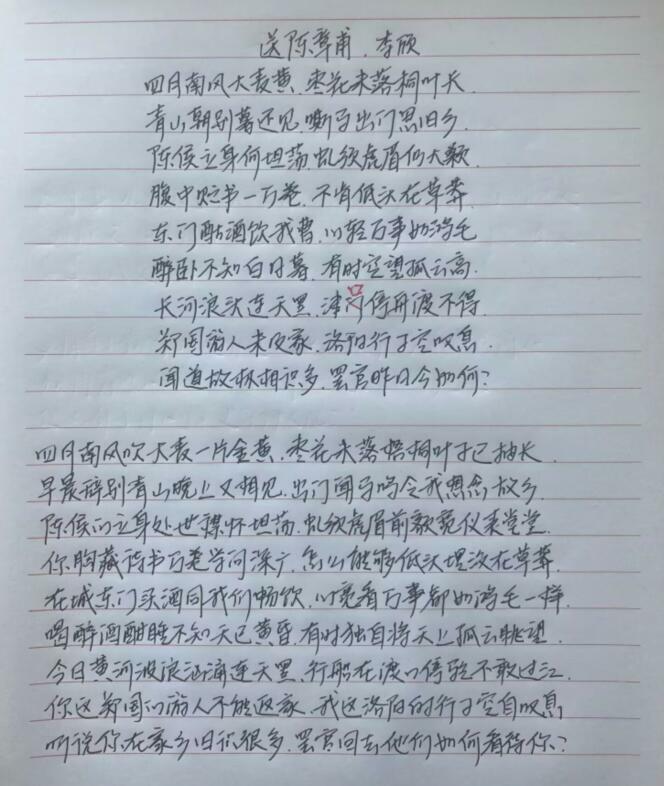 送陈章甫. 李颀
四月南风大麦黄. 枣花未落桐叶长.
青山朝别暮还见. 嘶马出门思旧乡.
陈侯立身何坦荡. 虬须虎眉仍大颡.
腹中贮书一万卷. 不肯低头在草莽.
东门酤酒饮我曹. 心轻万事如鸿毛
醉卧不知白日暮. 有时空望孤云高.
长河浪头连天黑. 津口停舟渡不得.
郑国游人未及家. 洛阳行子空叹息.
闻道故林相识多. 罢官昨日今如何?
四月南风吹大麦一片金黄. 枣花未落梧桐叶子已抽长.
早晨辞别青山晚上又相见. 出门闻马鸣令我想念故乡.
陈侯的立身处世襟怀坦荡. 虬须虎眉前额宽仪采堂堂.
你胸藏诗书万卷学问深广. 怎么能够低头埋没在草莽.
在城东门买酒同我们畅饮. 心宽看万事都如鸿毛一样.
喝醉酒酣睡不知天已黄昏. 有时独自将天上孤云眺望.
今日黄河波浪汹涌连天黑. 行船在渡口停驻不敢过江.
你这郑国的游人不能返家. 我这洛阳的行子空自叹息
听说你在家乡旧识很多. 罢官回去他们如何看待你?